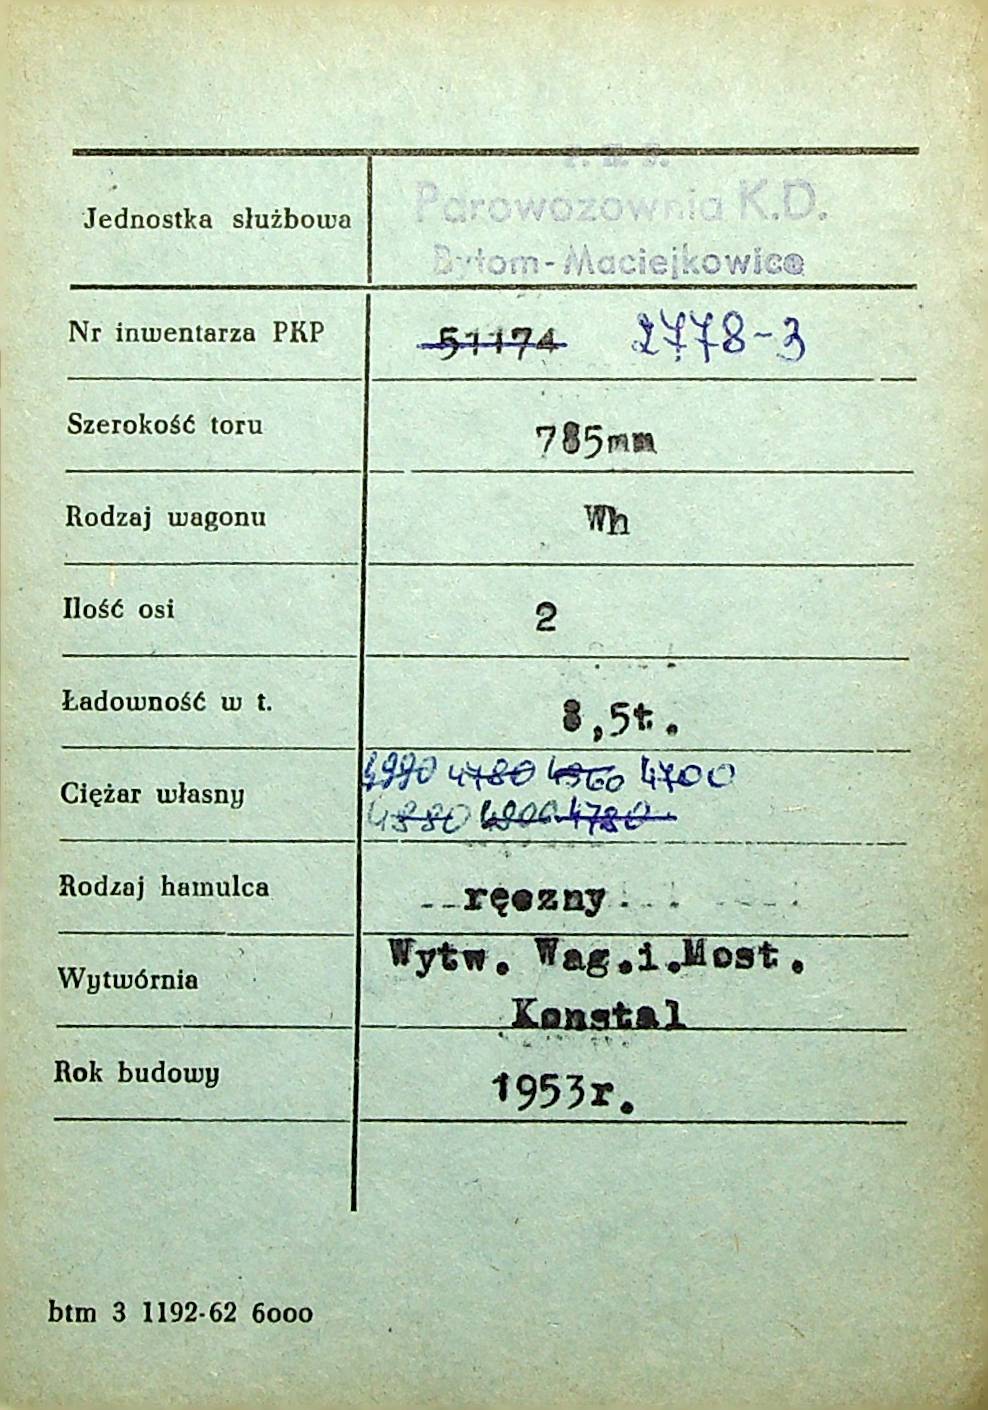 P. K. P.
Parowozownia K.D.
Jednostka służbowa
Bytom-Maciejkowice
Nr inwentarza PKP 51174 2778-3
Szerokość toru 785mm
Rodzaj wagonu Wh
Ilość osi 2
Ładowność w t. 8,5t.
4990 4780 4960 4700
Ciężar własny
4880 4900 4780
Rodzaj hamulca ręczny
Wytw. Wag.i.Most.
Wytwórnia
Konstal
Rok budowy 1953r.
btm 3 1192-62 6000